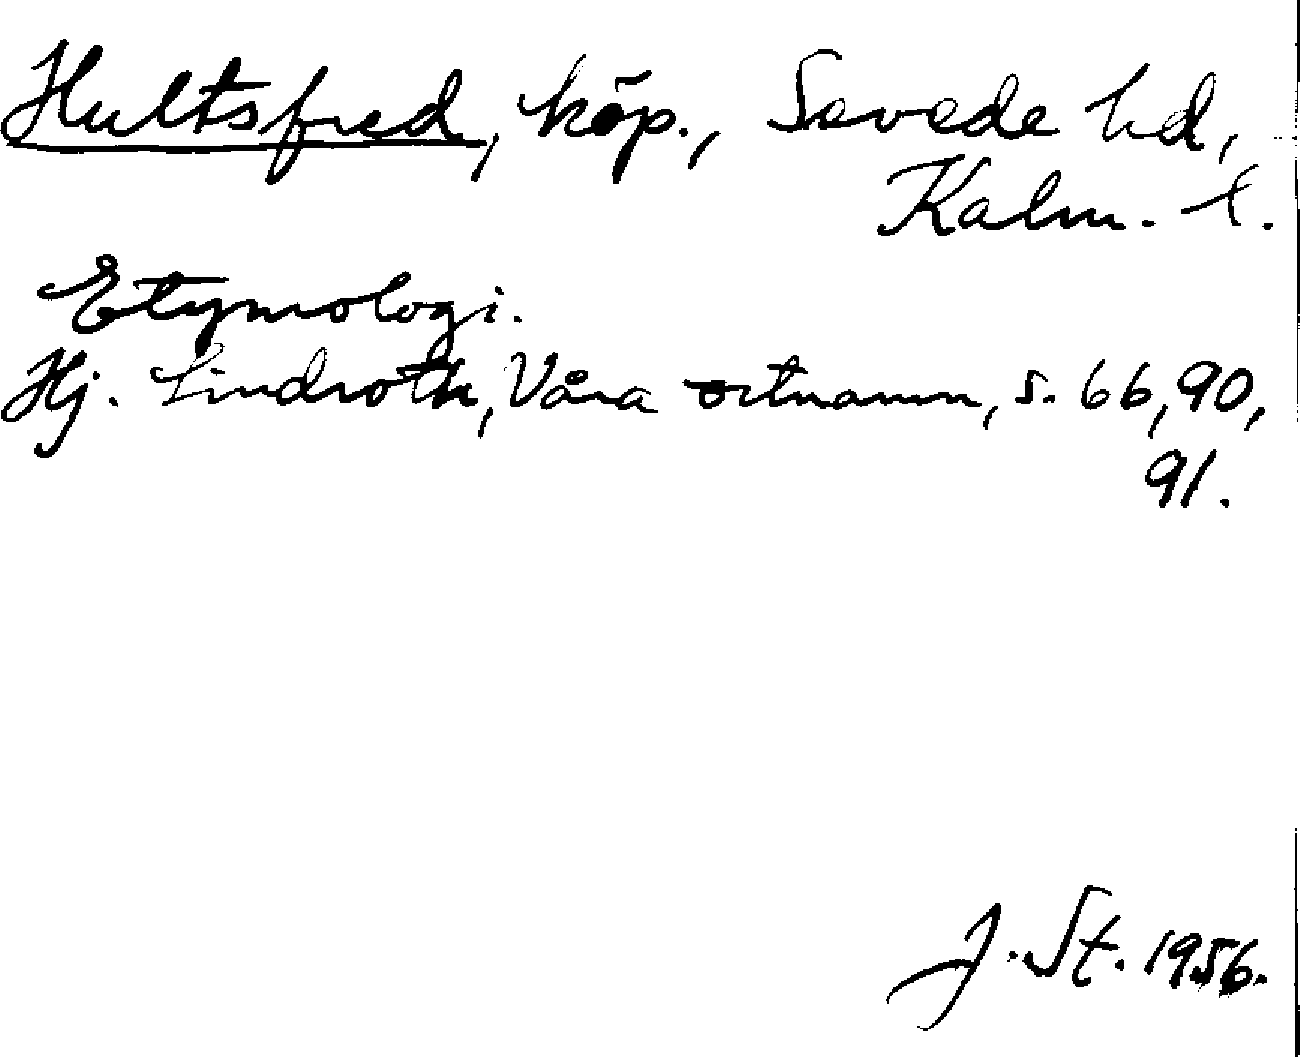 Hultsfred, köp., Sevede hd,
Kalm. l.
Etymologi.
Hj. Lindroth, Våra ortnamn, s. 66, 90,
91.
J. St. 1956.